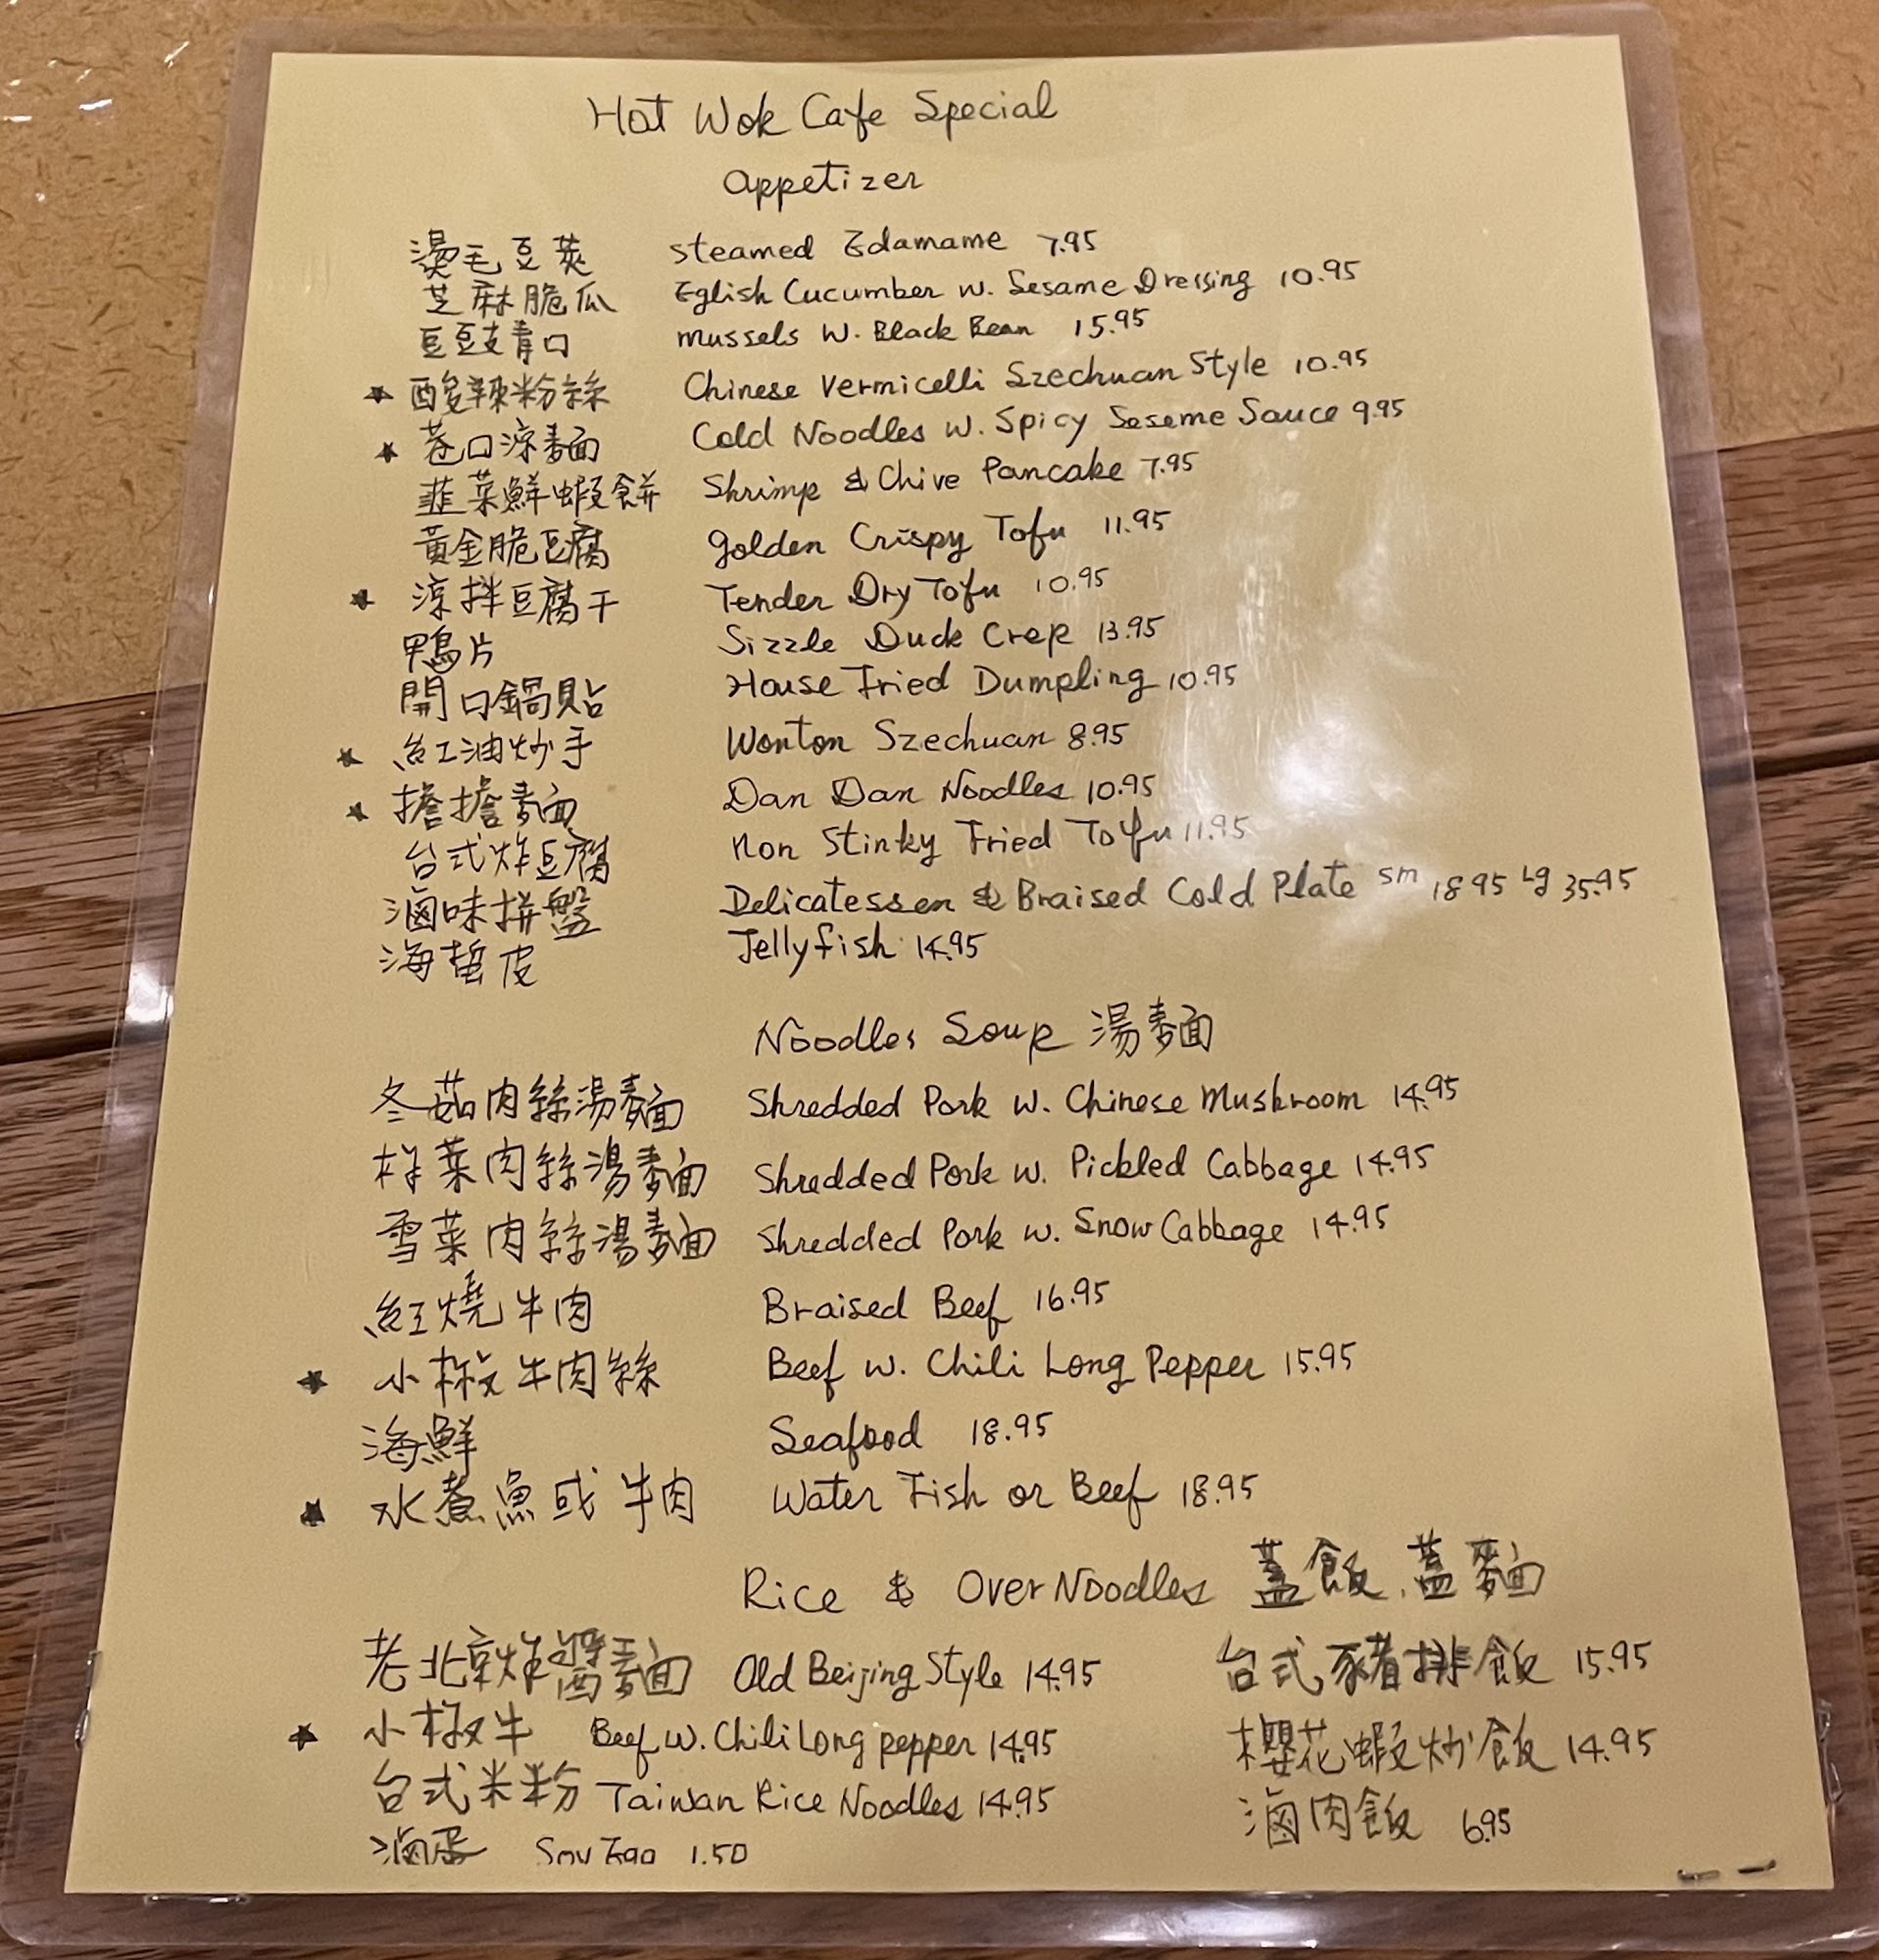 Hot Wok Cafe Special
Appetizer
燙毛豆莢 Steamed Edamame 7.95
芝麻脆瓜 Eglish Cucumber w. Sesame Dressing 10.95
豆豉青口 Mussels W. Black Bean 15.95
★ 酸辣粉絲 Chinese Vermicelli Szechuan Style 10.95
★ 巷口涼麵 Cold Noodles w. Spicy Seseme Sauce 9.95
韮菜鮮蝦餅 Shrimp & Chive Pancake 7.95
黃金脆豆腐 Golden Crispy Tofu 11.95
★ 涼拌豆腐干 Tender Dry Tofu 10.95
鴨片 Sizzle Duck Crep 13.95
開口鍋貼 House Fried Dumpling 10.95
★ 紅油炒手 Wonton Szechuan 8.95
★ 擔擔麵 Dan Dan Noodles 10.95
台式炸豆腐 Non Stinky Fried Tofu 11.95
滷味拼盤 Delicatessen & Braised Cold Plate Sm 18.95 Lg 35.95
海蜇皮 Jellyfish 14.95
Noodles Soup 湯麵
冬菇肉絲湯麵 Shredded Pork w. Chinese Mushroom 14.95
榨菜肉絲湯麵 Shredded Pork w. Pickled Cabbage 14.95
雪菜肉絲湯麵 Shredded Pork w. Snow Cabbage 14.95
紅燒牛肉 Braised Beef 16.95
★ 小椒牛肉絲 Beef w. Chili Long Pepper 15.95
海鮮 Seafood 18.95
★ 水煮魚或牛肉 Water Fish or Beef 18.95
Rice & Over Noodles 蓋飯、蓋麵
老北京炸醬麵 Old Beijing Style 14.95 台式豬排飯 15.95
★ 小椒牛 Beef w. Chili Long pepper 14.95 櫻花蝦炒飯 14.95
台式米粉 Taiwan Rice Noodles 14.95 滷肉飯 6.95
滷蛋 Soy Egg 1.50